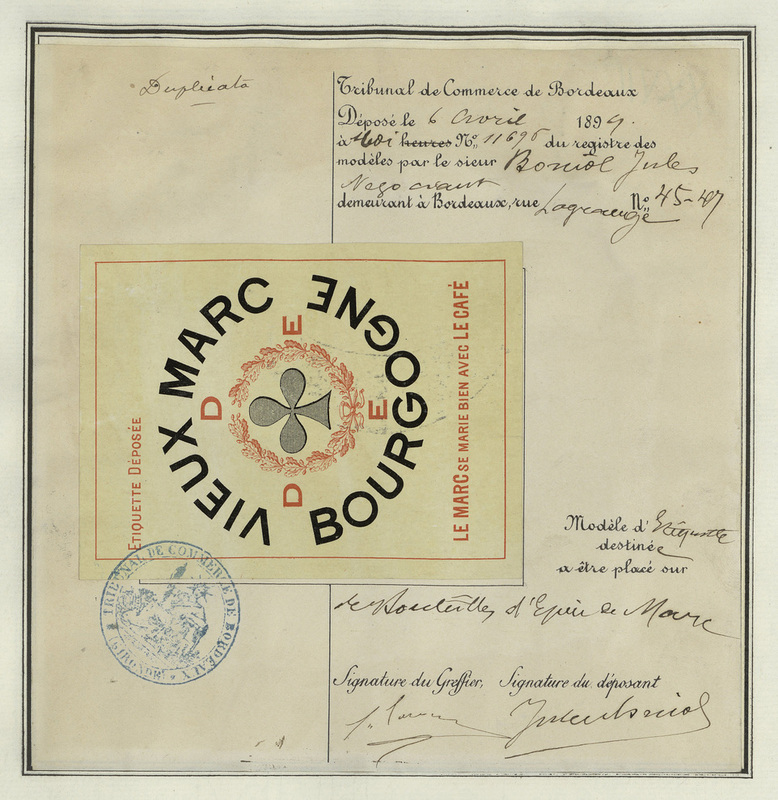 Duplicata
Tribunal de Commerce de Bordeaux
Déposé le 6 Avril 1899.
à Midi heures Nº 11696 du registre des
modèles par le sieur Boniol Jules
Negociant
demeurant à Bordeaux, rue Lagrange Nº 45-47
VIEUX MARC
DE
DE
BOURGOGNE
ETIQUETTE DÉPOSÉE
LE MARC SE MARIE BIEN AVEC LE CAFÉ
Modèle d'Etiquette
destinée
a être placé sur
de Bouteilles d' de Marc
TRIBUNAL DE COMMERCE DE BORDEAUX
(GIRONDE)
Signature du Greffier, Signature du déposant
Jules Boniol